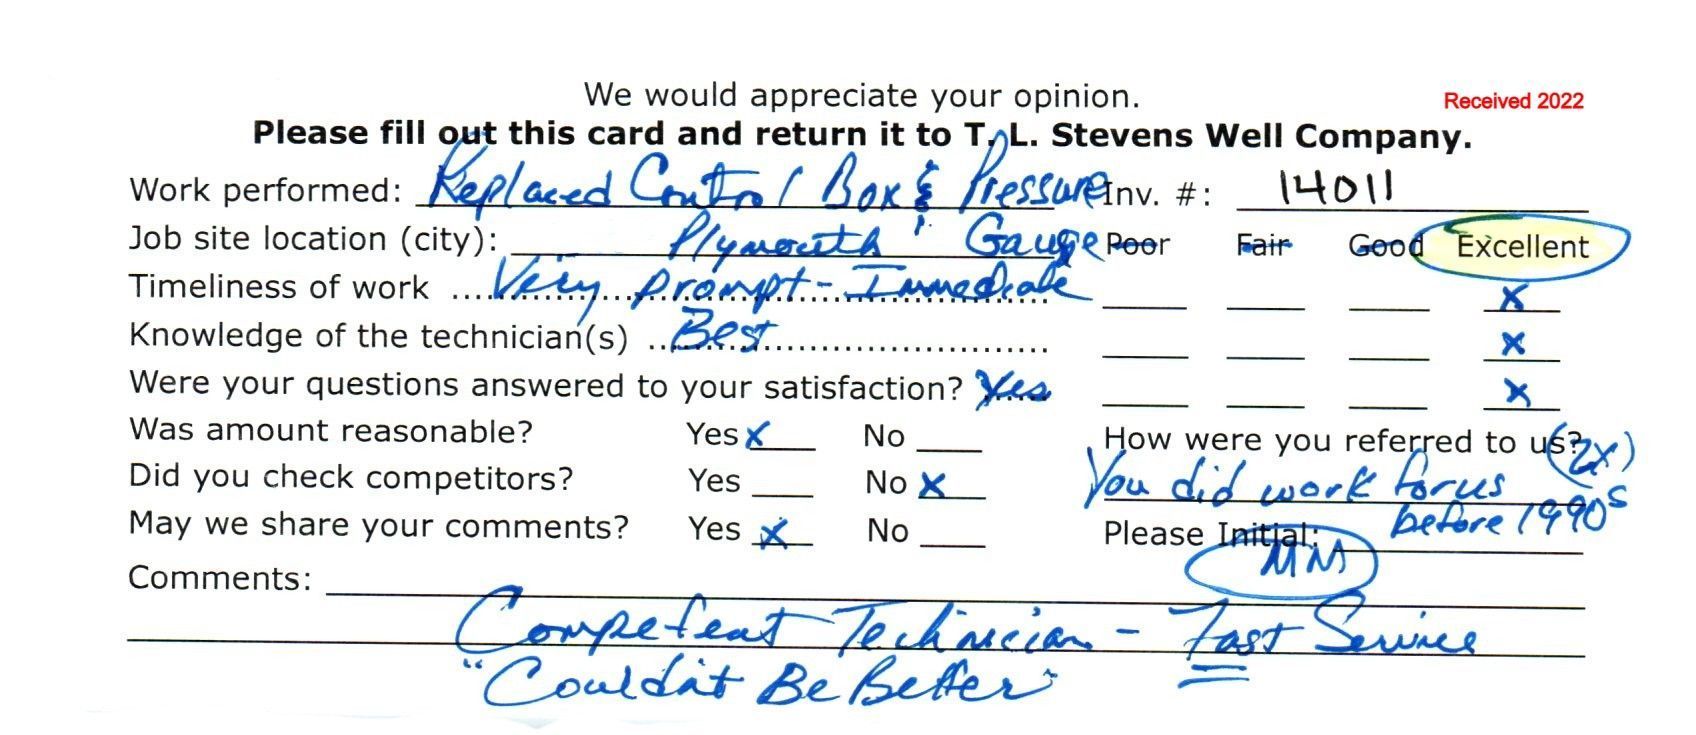 We would appreciate your opinion.
Received 2022
Please fill out this card and return it to T. L. Stevens Well Company.
Work performed: Replaced Control Box & Pressure Inv. #: 14011
Job site location (city): Plymouth Gauge Poor Fair Good Excellent
Timeliness of work Very prompt - Immediate x
Knowledge of the technician(s) Best x
Were your questions answered to your satisfaction? Yes x
Was amount reasonable? Yes x No How were you referred to us? (2x)
Did you check competitors? Yes No x You did work for us
before 1990s
May we share your comments? Yes x No Please Initial: MM
Comments:
Competent Technician - Fast Service
"Couldn't Be Better"